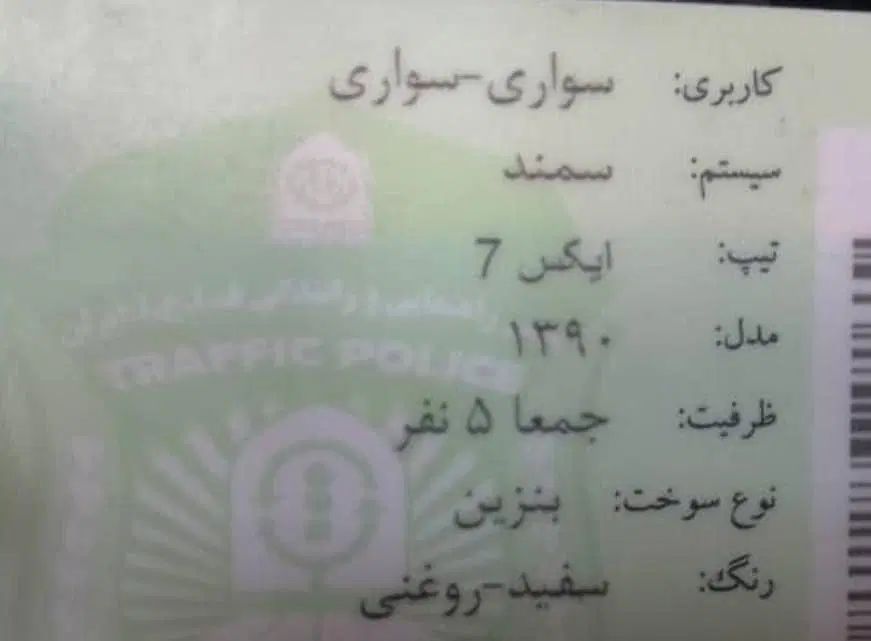 کاربری: سواری-سواری
سیستم: سمند
تیپ: ایکس 7
مدل: ۱۳۹۰
TRAFFIC POLICE
ظرفیت: جمعا ۵ نفر
نوع سوخت: بنزین
رنگ: سفید-روغنی